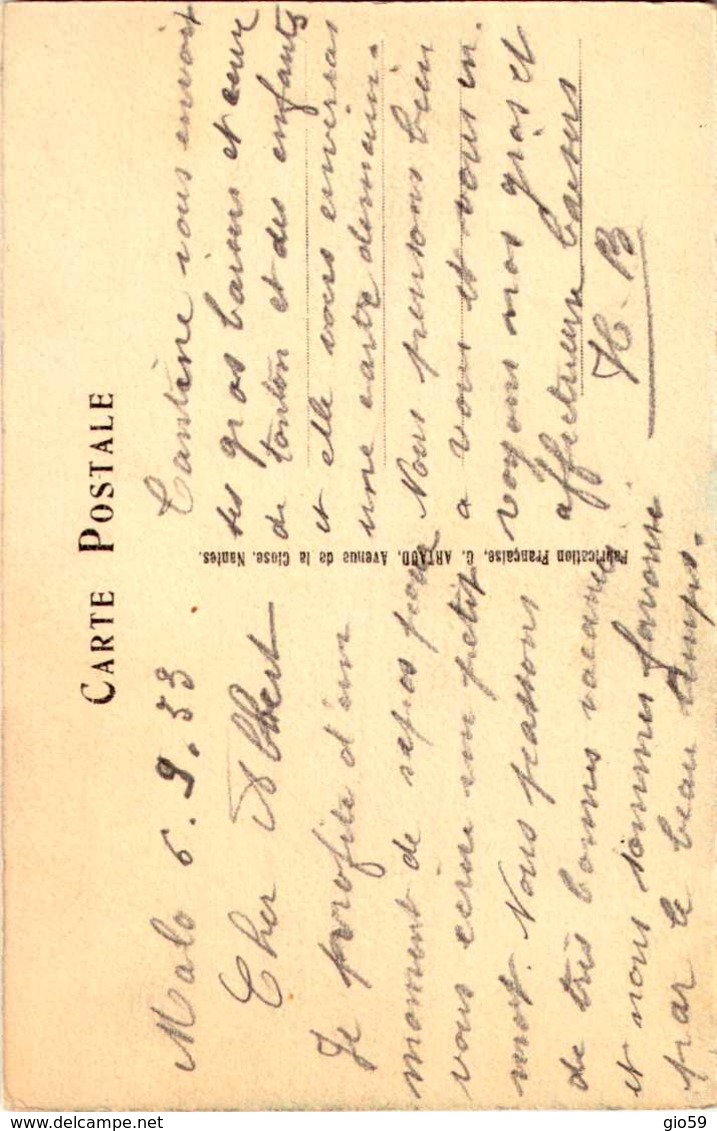 CARTE POSTALE
Malo 6.9.53
Cher Albert
Je profite d'un
moment de repos pour
vous ecrire un petit
mot. Nous passons
de très bonnes vacances
et nous sommes favorisé
par le beau temps.
Fabrication Française, C. ARTAUD, Avenue de la Close, Nantes.
Tantine vous envoit
ses gros baisers et ceux
de tonton et des enfants
et elle vous enverras
une carte demain.
Nous pensons bien
a vous et vous en
voyons nos gros et
affectueux baisers
H. B
delcampe.net
gio59